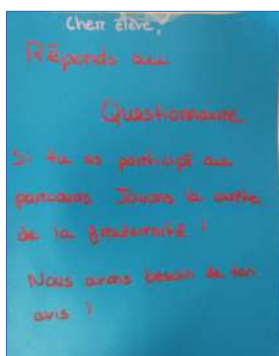 Cher élève,
Réponds au
Questionnaire
Si tu as participé au
parcours Jouons la carte
de la fraternité !
Nous avons besoin de ton
avis !